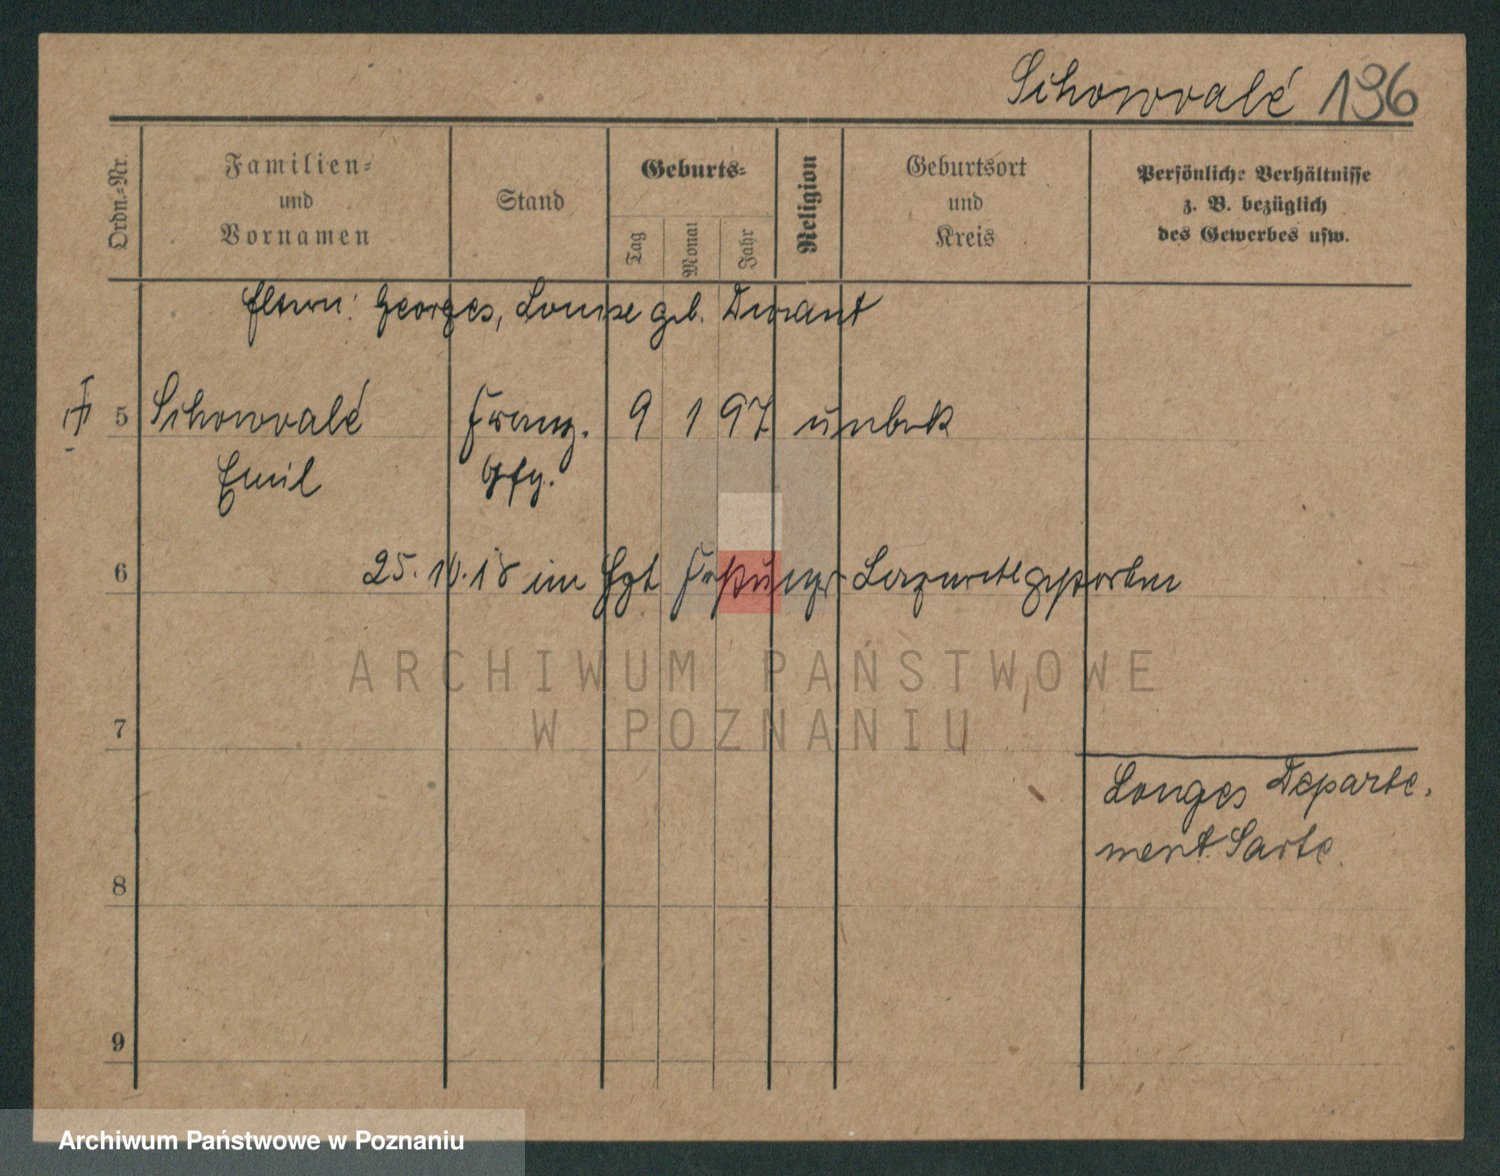 Schowvalé 196
Ordn.-Nr.
Familien-
und
Vornamen
Stand
Geburts-
Tag
Monat
Jahr
Religion
Geburtsort
und
Kreis
Persönliche Verhältnisse
z. B. bezüglich
des Gewerbes usw.
Eltern: Georges, Louise geb. Durant
5 Schowvalé Franz. 9 1 97 unbek
Emil Gfg.
6 25.10.18 im Fest. Lazarett gestorben
ARCHIWUM PAŃSTWOWE
W POZNANIU
7
Longes Departe-
ment Sarte.
8
9
Archiwum Państwowe w Poznaniu